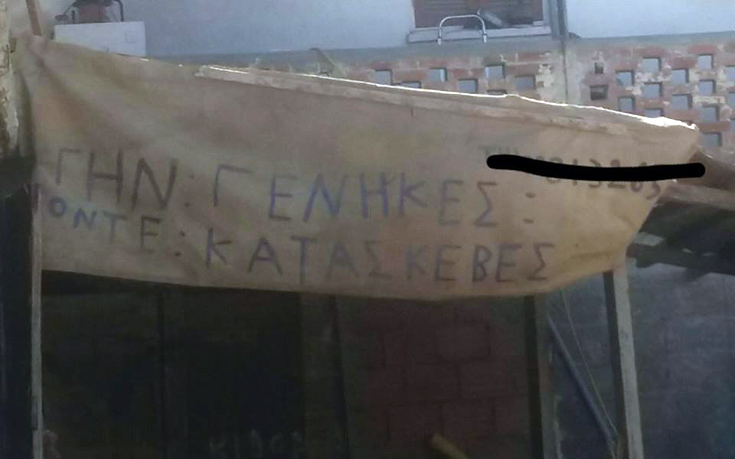 ΓΗΝ: ΓΕΝΗΚΕΣ:
ΟΝΤΕ: ΚΑΤΑΣΚΕΒΕΣ